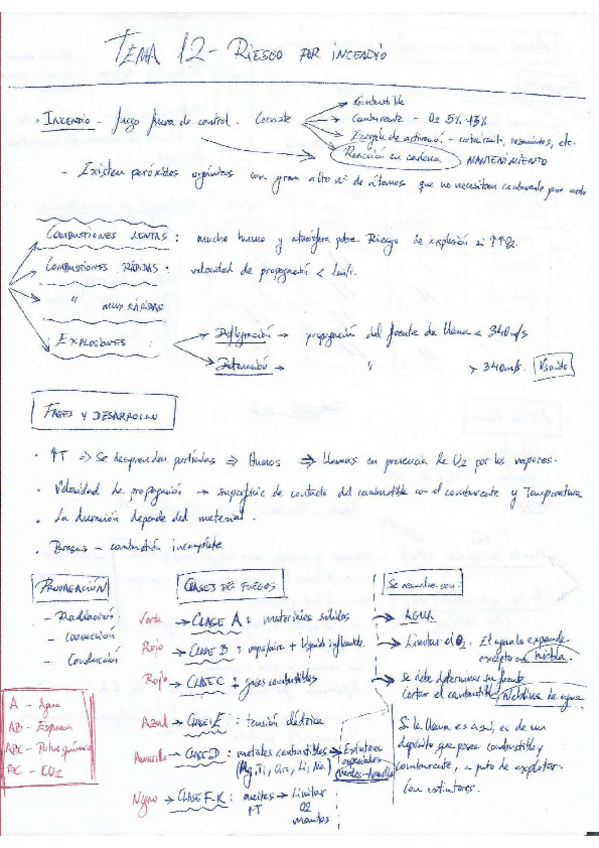 TEMA 12 - RIESGO POR INCENDIO
· INCENDIO - fuego fuera de control. Consiste
Combustible
Comburente - O2 5%-13%
Energía de activación - , rozamientos, etc.
Reacción en cadena MANTENIMIENTO
- Existen peróxidos orgánicos con gran alto nº de átomos que no necesitan comburente para arder
COMBUSTIONES LENTAS : mucho humo y atmósfera pobre. Riesgo de explosión si ↑↑O2.
COMBUSTIONES RÁPIDAS : velocidad de propagación < 1m/s.
" MUY RÁPIDAS
EXPLOSIONES :
Deflagración → propagación del frente de llama < 340m/s
Detonación → " > 340m/s.
FASES Y DESARROLLO
· ↑T ⇒ Se desprenden partículas ⇒ Humos ⇒ llamas en presencia de O2 por los vapores.
· Velocidad de propagación → superficie de contacto del combustible con el comburente y Temperatura
· La duración depende del material.
· Brasas - combustión incompleta
PROPAGACIÓN
- Radiación
- Convección
- Conducción
CLASES DE FUEGOS
Verde → CLASE A : materiales sólidos
Rojo → CLASE B : + líquido inflamable
Rojo → CLASE C : gases combustibles
Azul → CLASE E : tensión eléctrica
Amarillo → CLASE D : metales combustibles → Extintores especiales
(Mg, Ti, , Li, Na)
Negro → CLASE F-K : aceites → Limitar
↑T O2
Se resuelve con:
→ AGUA
→ Limitar el O2. El agua lo expande
excepto en niebla.
→ se debe determinar su fuente
cortar el combustible. de agua
Si la llama es azul, es de un
depósito que posee combustible y
comburente, a punto de explotar.
A - Agua
AB - Espuma
ABC - Polvo químico
BC - CO2